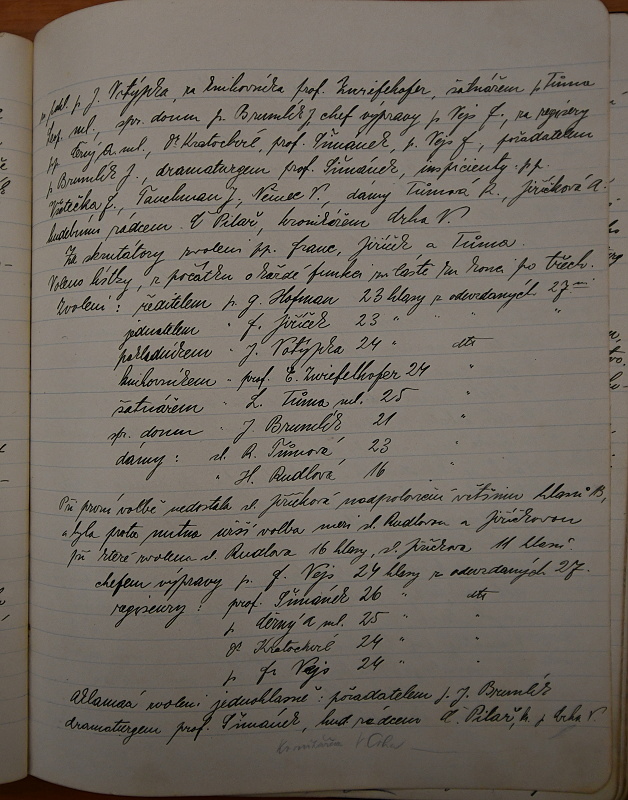 p. pokl. p. J. Votýpka, za knihovníka prof. Zwiefelhofer, šatnářem p. Tůma
Lep. ml., spr. domu p. Brumlík J. chef výpravy p. Vejs f., za regisery
pp. Černý A. ml., Dr Kratochvíl, prof. Šimánek, p. Vejs f., pořadatelem
p. Brumlík J., dramaturgem prof. Šimánek, inspicienty pp.
Všetečka J., Tauchman J., Nemec V., dámy Tůmova R., Jiříčková A.
hudebním rádcem Č. Pilař, kronikářem Drha V.
Za skrutátory zvoleni pp. Franc, Jiříček a Tůma.
Voleno lístky, z počátku o každé funkci zvláště ku konci po třech.
Zvoleni: ředitelem p. G. Hofman 23 hlasy z odevzdaných 27
jednatelem " f. Jiříček 23 " " "
pokladníkem " J. Votýpka 24 " dtto
knihovníkem " prof. E. Zwiefelhofer 24 "
šatnářem " L. Tůma ml. 25 "
spr. domu " J. Brumlík 21 "
dámy: sl. R. Tůmová, 23 "
" H. Rudlová 16 "
Při první volbě nedostala sl. Jiříčková nadpoloviční většinu hlasů
a byla proto nutna užší volba mezi sl. Rudlovou a Jiříčkovou
při které zvolena sl. Rudlova 16 hlasy, sl. Jiříčkova 11 hlasů.
chefem výpravy p. f. Vejs 24 hlasy z odevzdaných 27.
regiseury: prof. Šimánek 26 " dtto
p. Černý A. ml. 25 " "
Dr Kratochvíl 24 " "
p. fr. Vejs 24 " "
Aklamací zvoleni jednohlasně: pořadatelem p. J. Brumlík
dramaturgem prof. Šimánek, hud. rádcem Č. Pilař, k. p. Drha V.